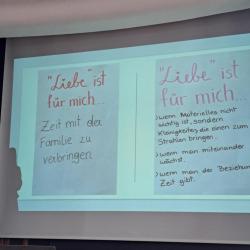 "Liebe" ist
für mich...
Zeit mit der
Familie zu
verbringen
"Liebe" ist
für mich...
> wenn Materielles nicht
wichtig ist, sondern
Kleinigkeiten, die einen zum
Strahlen bringen.
> wenn man miteinander
wächst.
> wenn man der Beziehung
Zeit gibt.